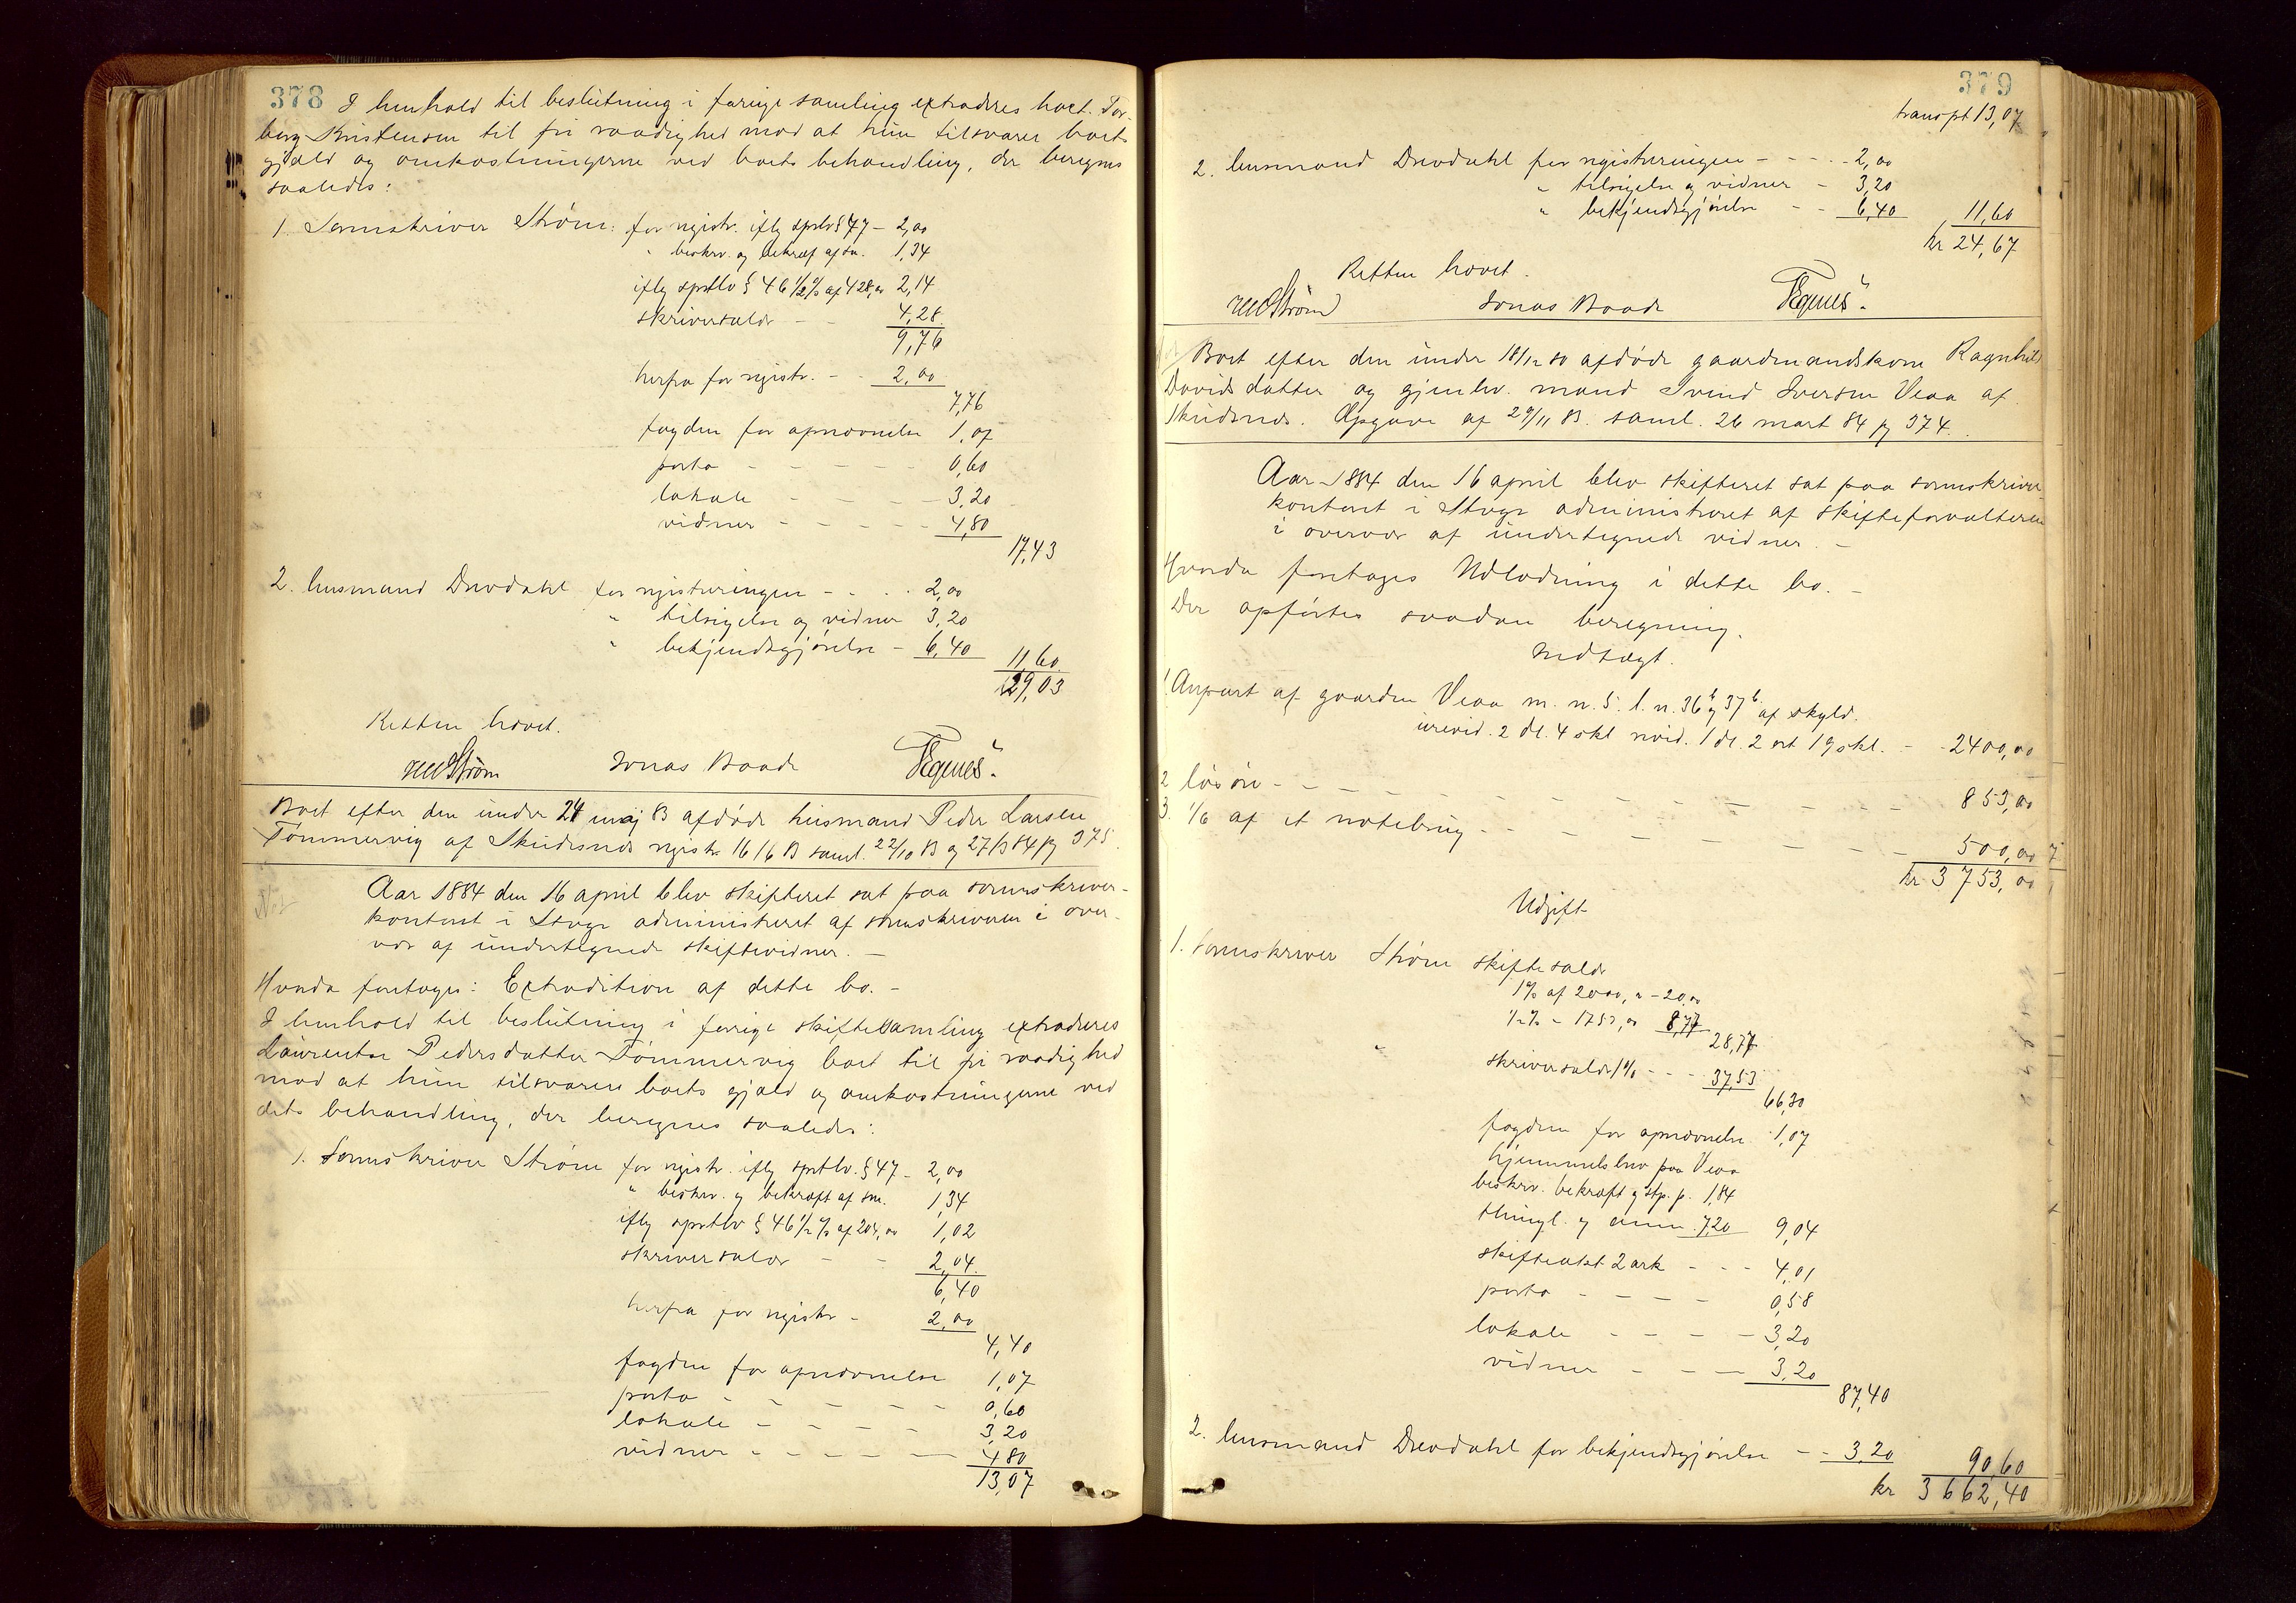 378
I henhold til beslutning i forrige samling extraderes boet Tor-
borg Kristensen til fri raadighed mod at hun tilsvarer boets
gjæld og omkostningerne ved boets behandling, der beregnes
saaledes:
1. Sorenskriver Strøm: for registr. iflg sprtlv § 47 – 2,00
" beskrv. og bekræft af do. 1,34
iflg sprtlv § 46 1/2 % af 428,00 2,14
skriversalær – – 4,28
9,76
herfra for registr. – – 2,00
7,76
fogden for opnævnelse 1,07
porto – – – – – 0,60
lokale – – – 3,20
vidner – – – – – 4,80
17,43
2. husmand Drevdahl for registeringen – – . . 2,00
" tilsigelse og vidner 3,20
" bekjendtgjørelse – 6,40 11,60
29,03
Retten hævet.
Strøm Jonas Baade TEgnes
Boet efter den under 24 maj 83 afdøde husmand Peder Larsen
Tømmervig af Skudesnes registr. 16/6 83 saml. 22/10 83 og 27/3 84 pg 375.
Aar 1884 den 16 april blev skifteret sat paa sorenskriver-
kontoret i Stoge administreret af sorenskriveren i over-
vær af undertegnede skiftevidner. –
Hvorda foretoges: Extradition af dette bo. –
I henhold til beslutning i forrige skiftesamling extraderes
Laurentse Pedersdatter Tømmervig boet til fri raadighed
mod at hun tilsvarer boets gjæld og omkostningerne ved
dets behandling, der beregnes saaledes:
1. Sorenskriver Strøm for registr. iflg sprtlv. § 47 – 2,00
" beskrv. og bekræft af sm. 1,34
iflg sprtlv § 46 1/2 % af 204,00 1,02
skriversalær – – 2,04
6,40
herfra for registr – 2,00
4,40
fogden for opnævnelse 1,07
porto – – – – – – 0,60
lokale – – – – – 3,20
vidner – – – – – – 4,80
13,07
379
transpt 13,07
2. husmand Drevdahl for registeringen – – – . . 2,00
" tilsigelse og vidner – 3,20
" bekjendtgjørelse – – 6,40 11,60
kr 24,67
Retten hævet.
Strøm Jonas Baade TEgnes
Boet efter den under 18/12 80 afdøde gaardmandskone Ragnhild
Davidsdatter og gjenlev. mand Svend Iversen Veaa af
Skudesnes. Opgave af 29/11 83. saml. 26 mart 84 pg 374.
Aar 1884 den 16 april blev skifteret sat paa sorenskriver-
kontoret i Stoge administreret af skifteforvalteren
i overvær af undertegnede vidner. –
Hvorda foretoges Udlodning i dette bo. –
Der opførtes saadan beregning.
Indtægt.
1. Anpart af gaarden Veaa m. n. 5. l. n. 36b og 37b af skyld.
urevid. 2 dl. 4 skl revid. 1 dl. 2 ort 19 skl. – – 2400,00
2 løsøre – – – – – – – – – – – – 853,00
3. 1/6 af et notebrug – – – – – – – – 500,00
kr 3753,00
Udgift
1. Sorenskriver Strøm skiftesalær
1% af 2000,00 – 20,00
1/2% – 1753,00 8,77
28,77
" skriversalær 1% – – – 37,53
66,30
fogden for opnævnelse 1,07
hjemmelsbrev paa Veaa
beskriv. bekræft og stp. p. 1,84
thingl. og anm. 7,20 9,04
skifteakt 2 ark – – – 4,01
porto – – – – 0,58
lokale – – – – 3,20
vidner – – – 3,20
87,40
2. husmand Drevdahl for bekjendtgjørelse – – 3,20 90,60
kr 3662,40